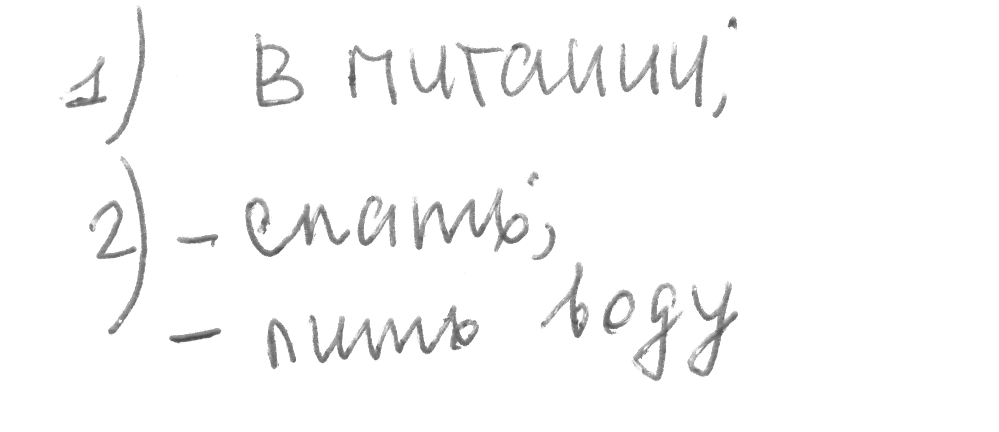 1) В питании;
2) - спать;
- пить воду